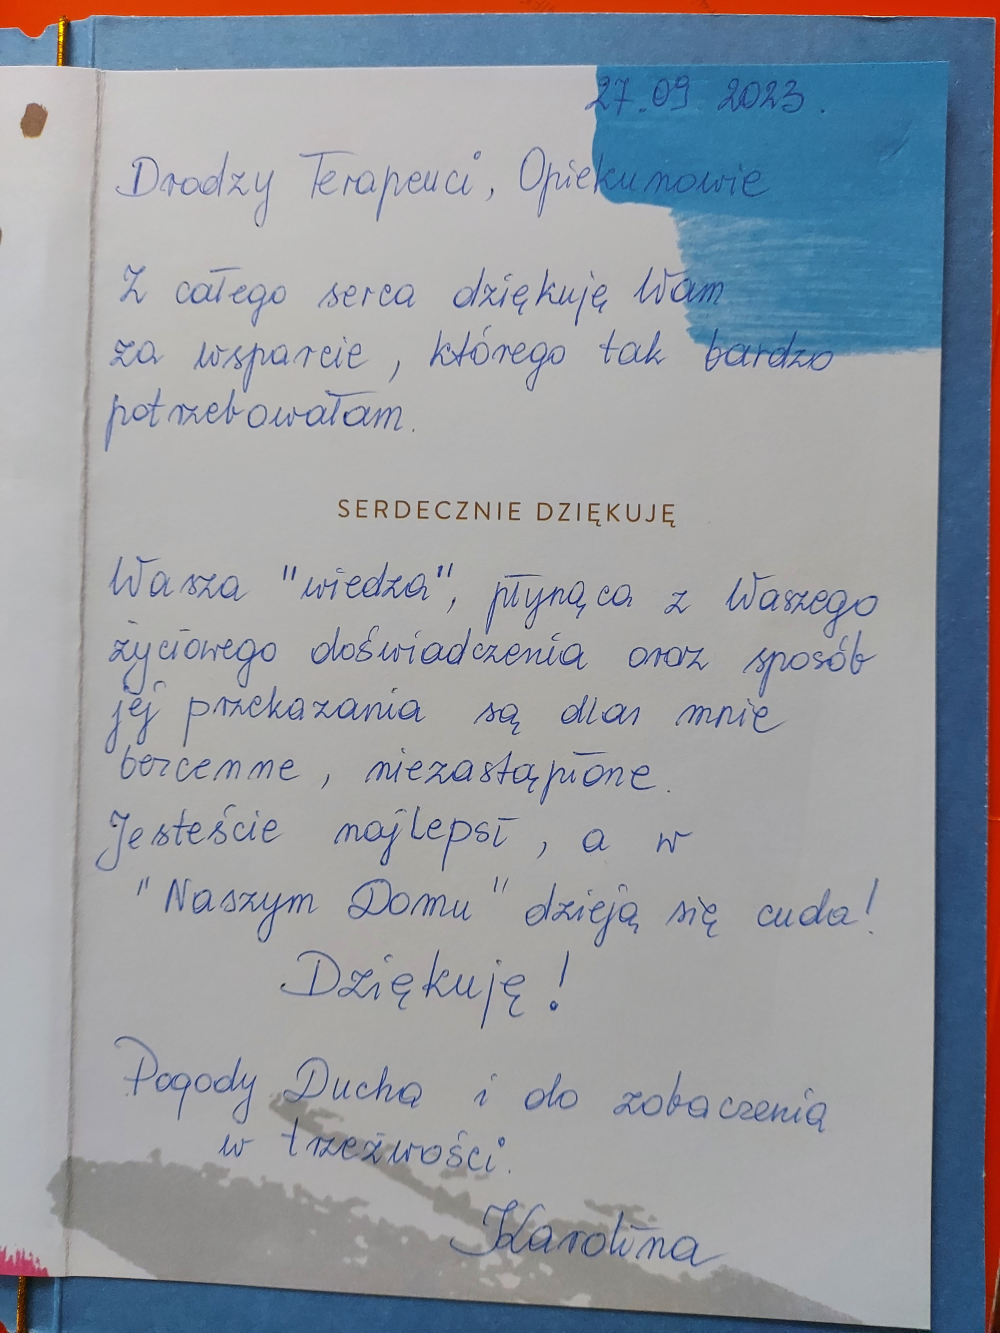 27.09 2023.
Drodzy Terapeuci, Opiekunowie
Z całego serca dziękuję Wam
za wsparcie, którego tak bardzo
potrzebowałam.
SERDECZNIE DZIĘKUJĘ
Wasza "wiedza", płynąca z Waszego
życiowego doświadczenia oraz sposób
jej przekazania są dla mnie
bezcenne, niezastąpione.
Jesteście najlepsi, a w
"Naszym Domu" dzieją się cuda!
Dziękuję!
Pogody Ducha i do zobaczenia
w trzeźwości.
Karolina